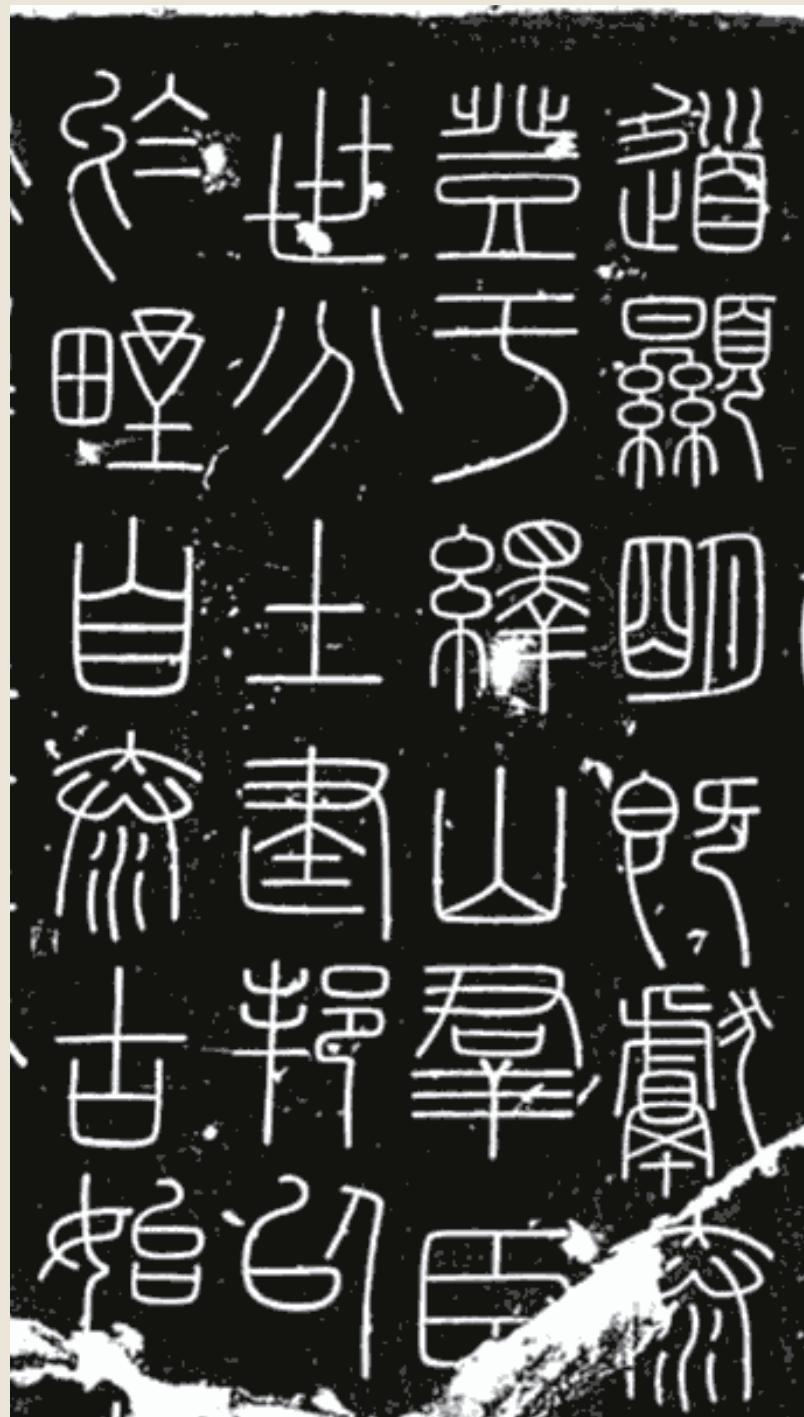 道顯明既獻泰
登于繹山羣臣
世分土建邦以
於野自泰古始